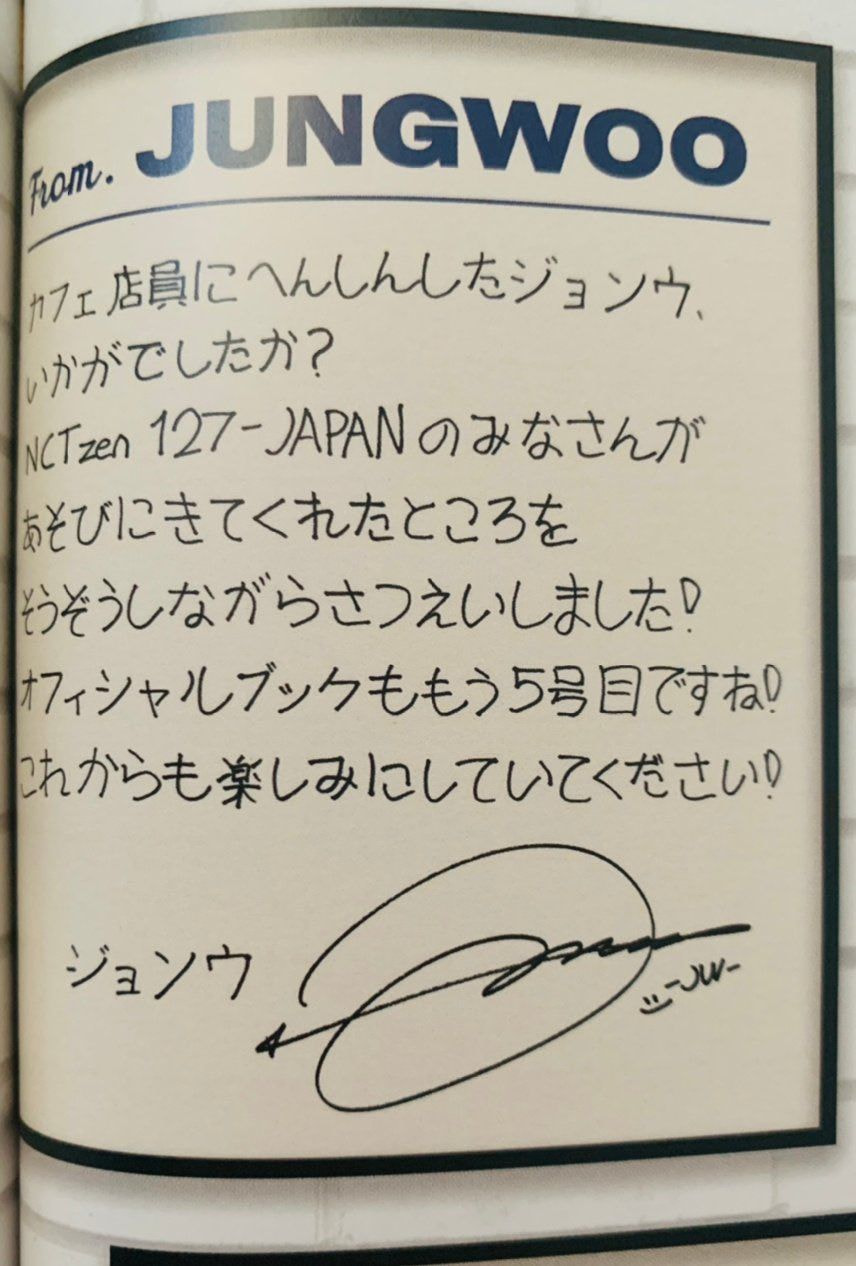 From. JUNGWOO
カフェ店員にへんしんしたジョンウ、
いかがでしたか?
NCTzen 127-JAPANのみなさんが
あそびにきてくれたところを
そうぞうしながらさつえいしました!
オフィシャルブックももう5号目ですね!
これからも楽しみにしていてください!
ジョンウ
-JW-